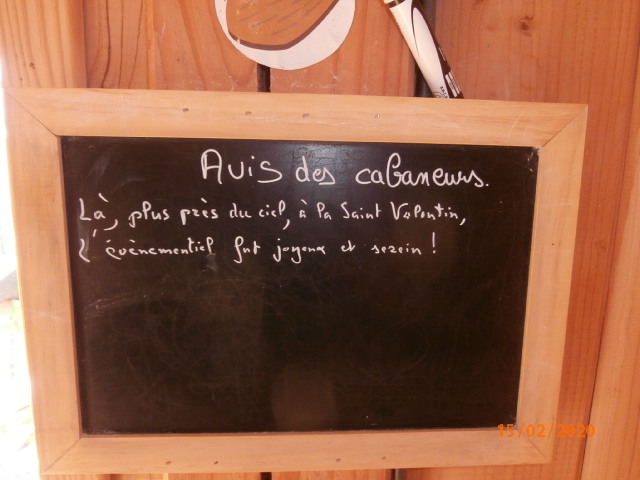 Avis des cabaneurs.
Là, plus près du ciel, à la Saint Valentin,
L'évènementiel fut joyeux et serein !
15/02/2020